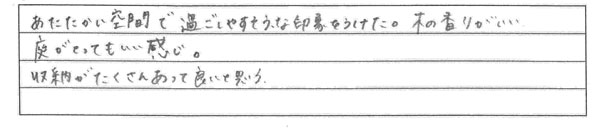 あたたかい空間で過ごしやすそうな印象をうけた。木の香りがいい
庭がとってもいい感じ。
収納がたくさんあって良いと思う